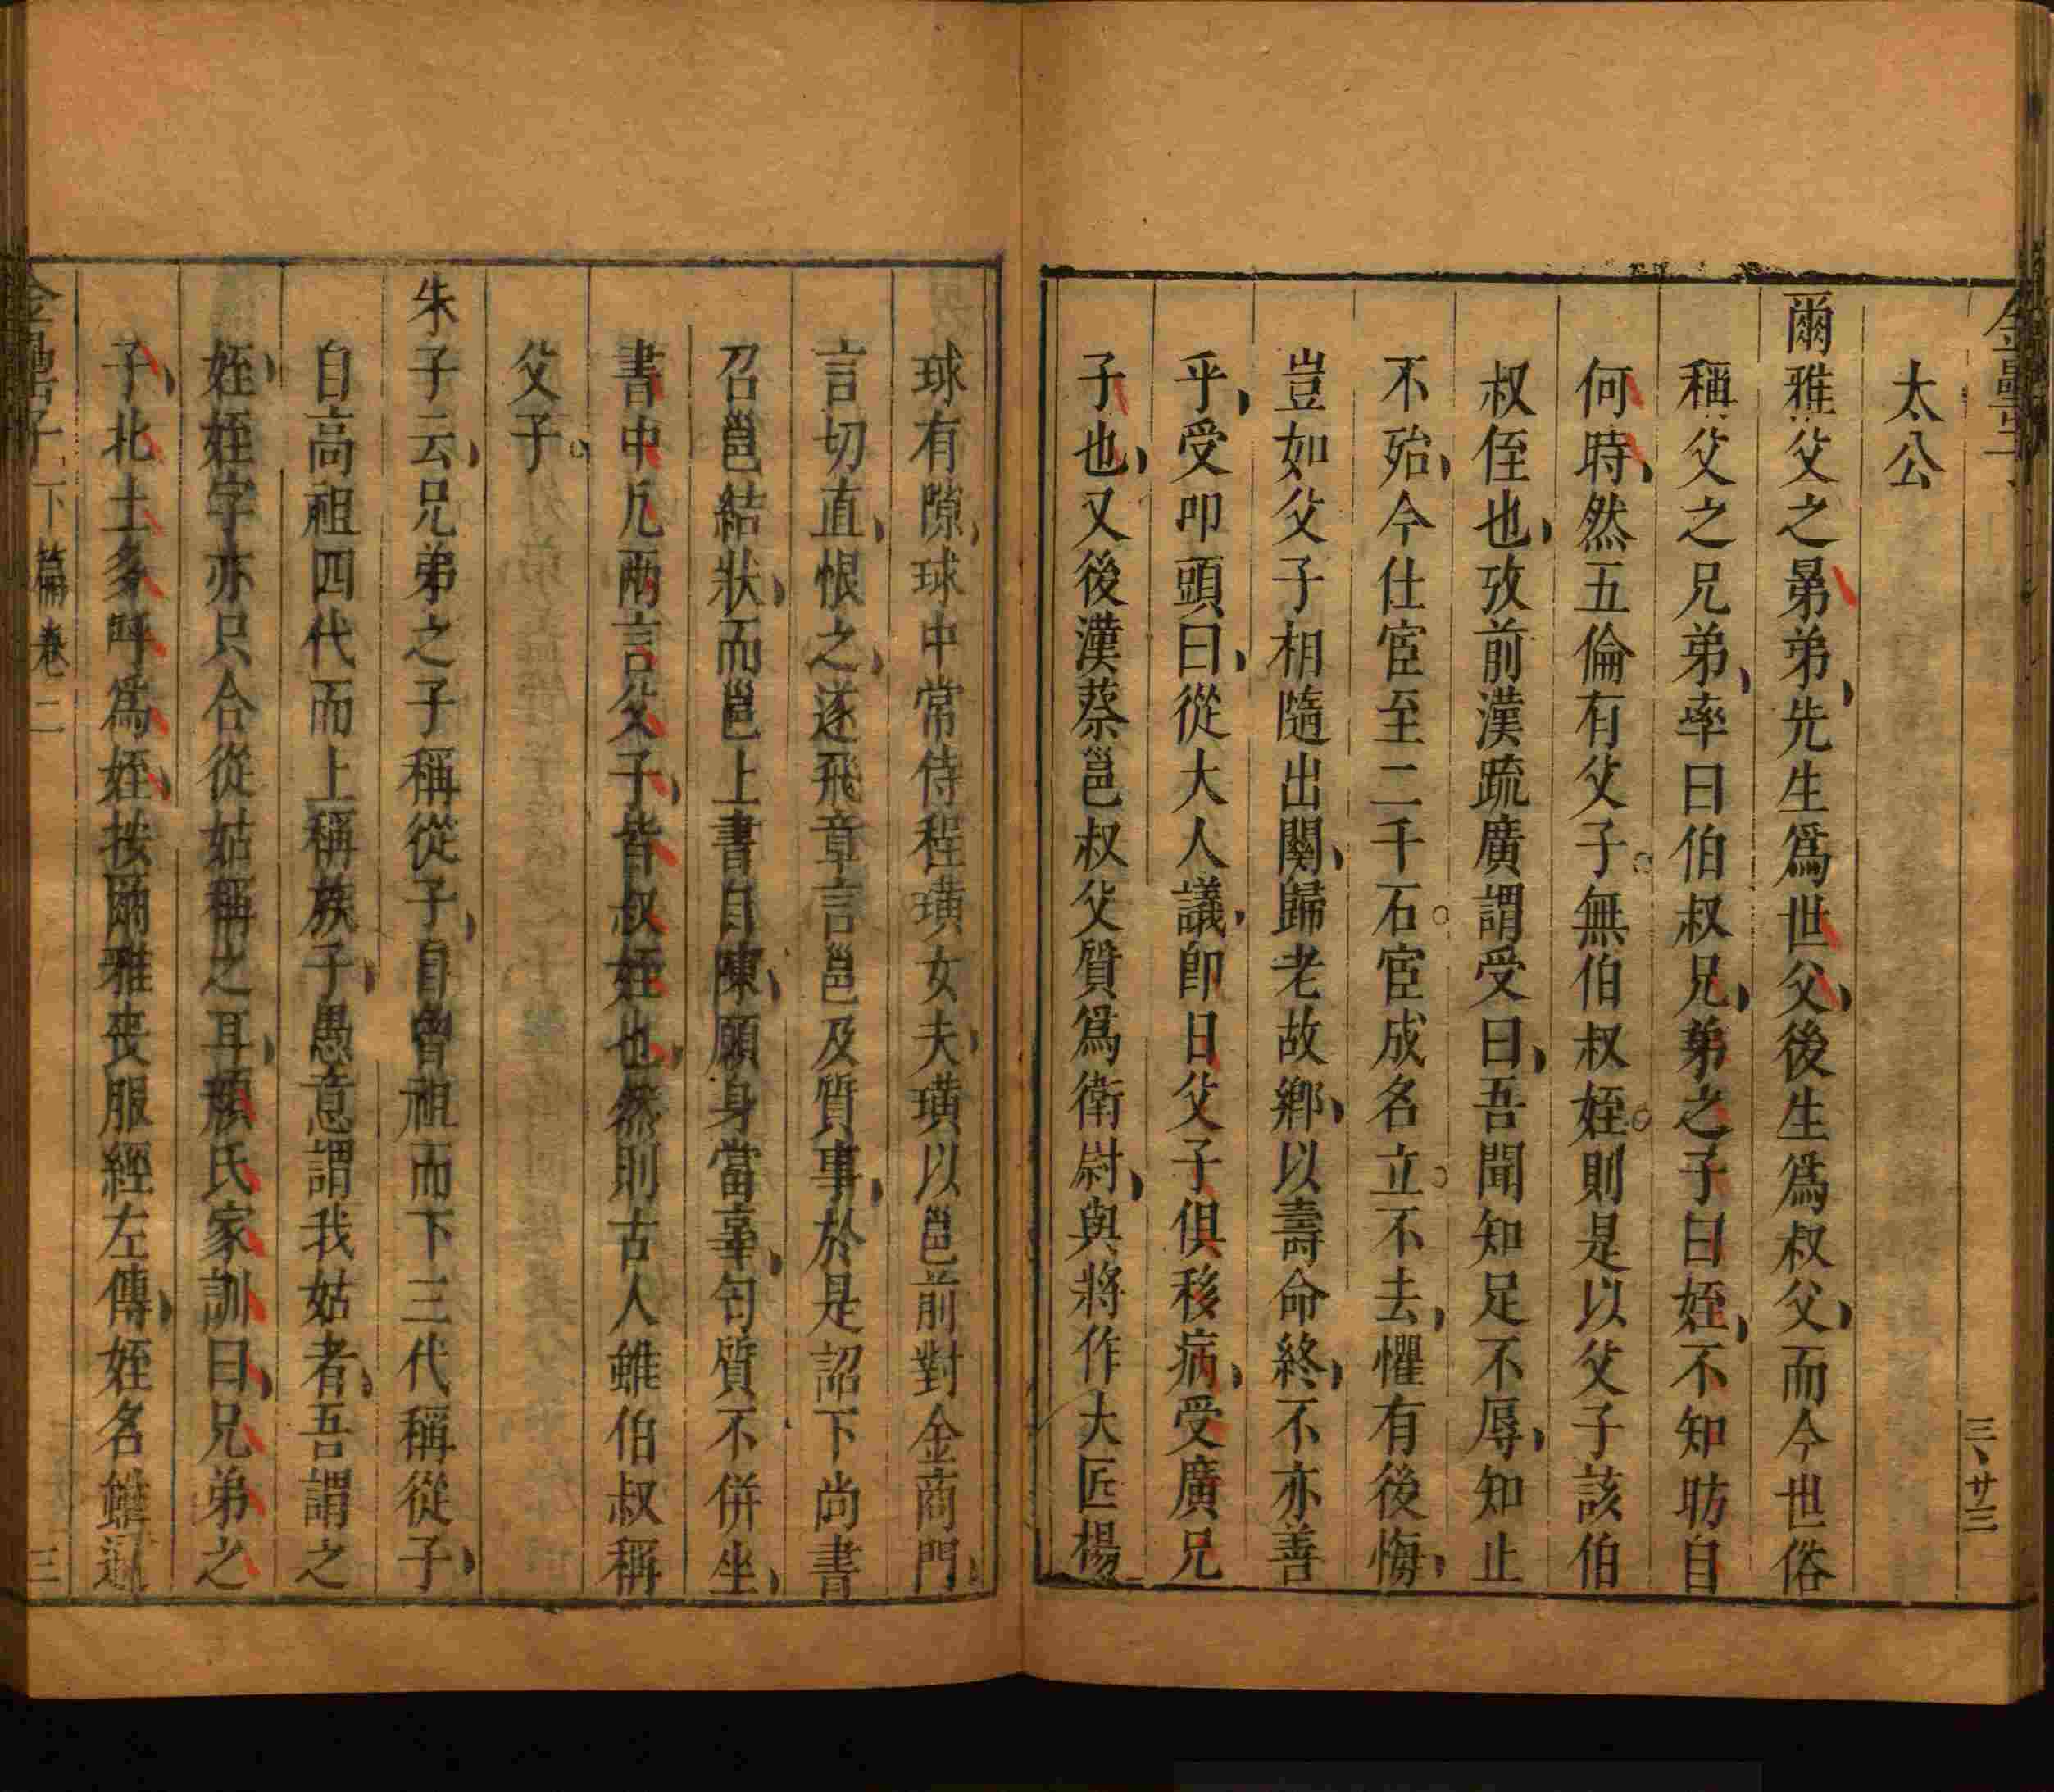 太公
爾雅父之晜弟先生爲世父後生爲叔父而今世俗
稱父之兄弟率曰伯叔兄弟之子曰姪不知昉自
何時然五倫有父子無伯叔姪則是以父子該伯
叔侄也攷前漢疏廣謂受曰吾聞知足不辱知止
不殆今仕宦至二千石宦成名立不去懼有後悔
豈如父子相隨出關歸老故鄉以壽命終不亦善
乎受叩頭曰從大人議即日父子俱移病受廣兄
子也又後漢蔡邕叔父質爲衛尉與將作大匠楊
球有隙球中常侍程璜女夫璜以邕前對金商門
言切直恨之遂飛章言邕及質事於是詔下尚書
召邕結狀而邕上書自陳願身當辜匄質不併坐
書中凡兩言父子皆叔姪也然則古人雖伯叔稱
父子
朱子云兄弟之子稱從子自曾祖而下三代稱從子
自高祖四代而上稱族子愚意謂我姑者吾謂之
姪姪字亦只合從姑稱之耳顏氏家訓曰兄弟之
子北土多呼爲姪按爾雅喪服經左傳姪名雖通
金罍子 下篇卷二 三